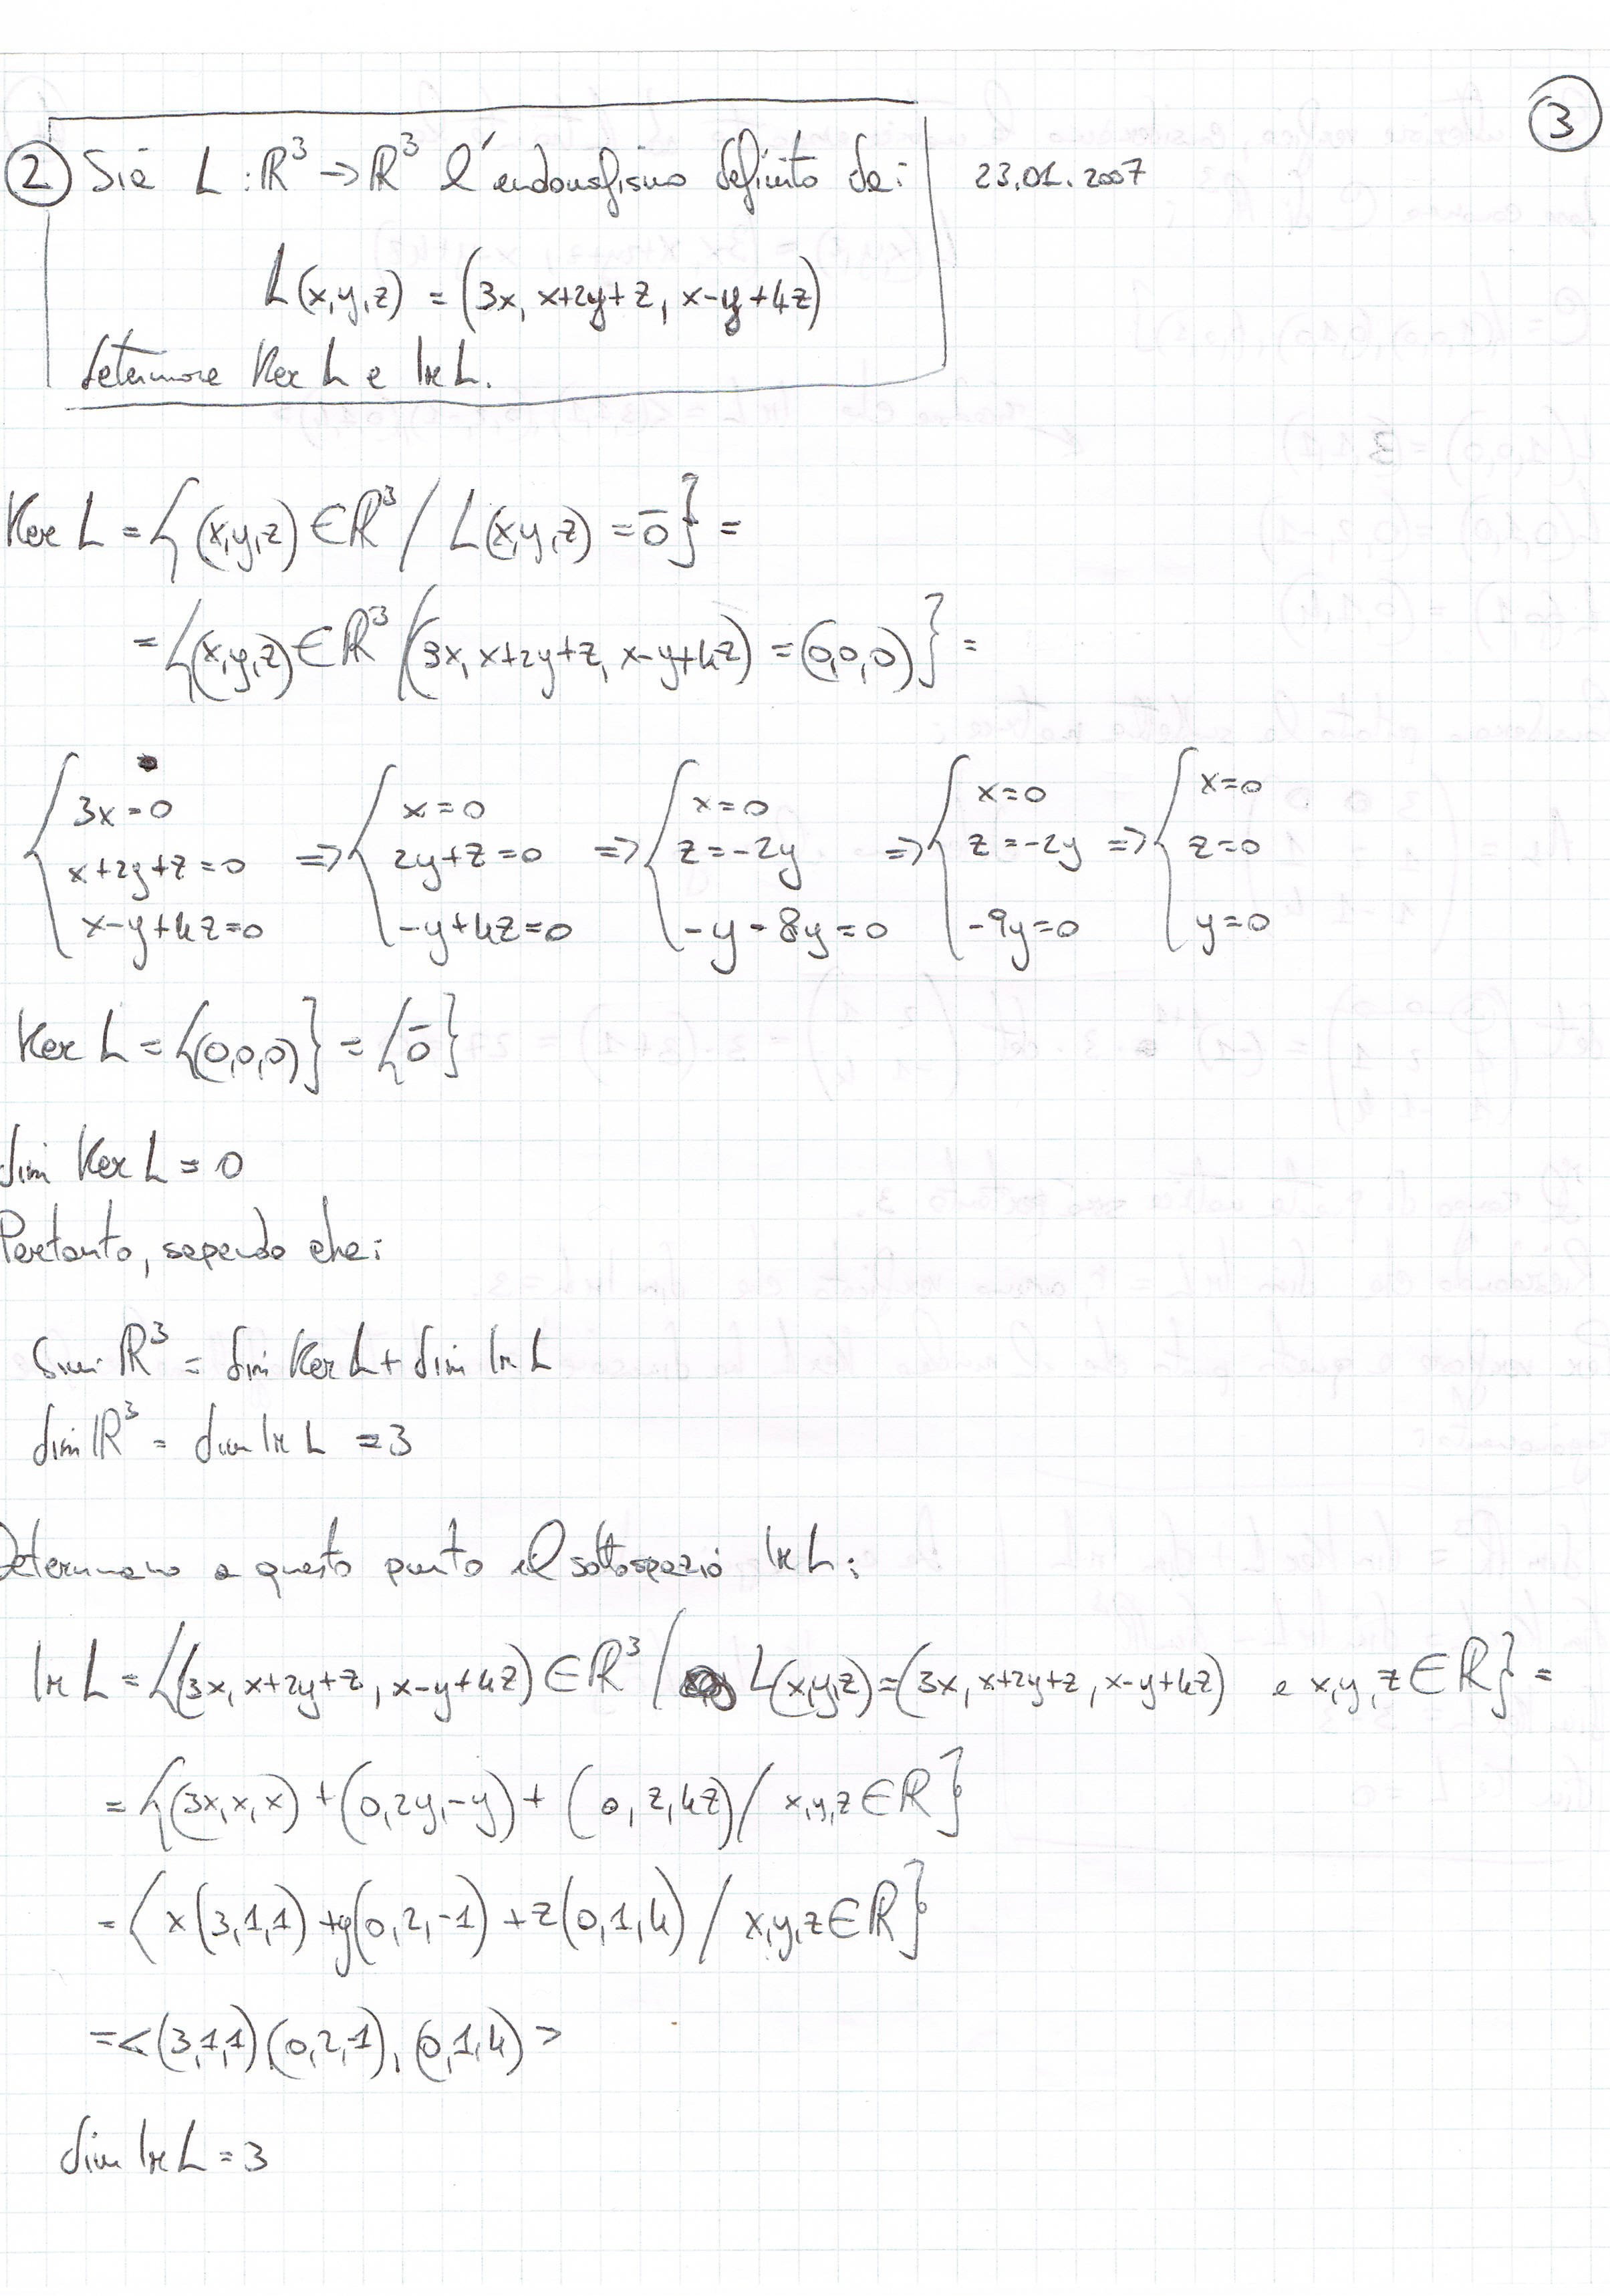 ③
② Sia L : ℝ³ → ℝ³ l'endomorfismo definito da: 23.01.2007
L(x,y,z) = (3x, x+2y+z, x-y+4z)
determinare Ker L e Im L.
Ker L = {(x,y,z) ∈ ℝ³ / L(x,y,z) = 0̄} =
= {(x,y,z) ∈ ℝ³ / (3x, x+2y+z, x-y+4z) = (0,0,0)} =
{ 3x=0 ⇒ { x=0 ⇒ { x=0 ⇒ { x=0 ⇒ { x=0
x+2y+z=0 2y+z=0 z=-2y z=-2y z=0
x-y+4z=0 -y+4z=0 -y-8y=0 -9y=0 y=0
Ker L = {(0,0,0)} = {0̄}
dim Ker L = 0
Pertanto, sapendo che:
dim ℝ³ = dim Ker L + dim Im L
dim ℝ³ = dim Im L = 3
Determiniamo a questo punto il sottospazio Im L:
Im L = {(3x, x+2y+z, x-y+4z) ∈ ℝ³ / L(x,y,z) = (3x, x+2y+z, x-y+4z) e x,y,z ∈ ℝ} =
= {(3x,x,x) + (0,2y,-y) + (0,z,4z) / x,y,z ∈ ℝ}
= {x(3,1,1) + y(0,2,-1) + z(0,1,4) / x,y,z ∈ ℝ}
= <(3,1,1),(0,2,-1),(0,1,4)>
dim Im L = 3